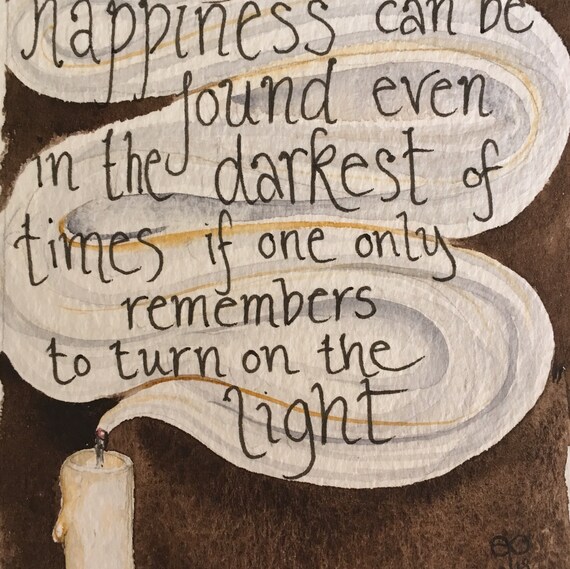 happiness can be
found even
in the darkest of
times if one only
remembers
to turn on the
light